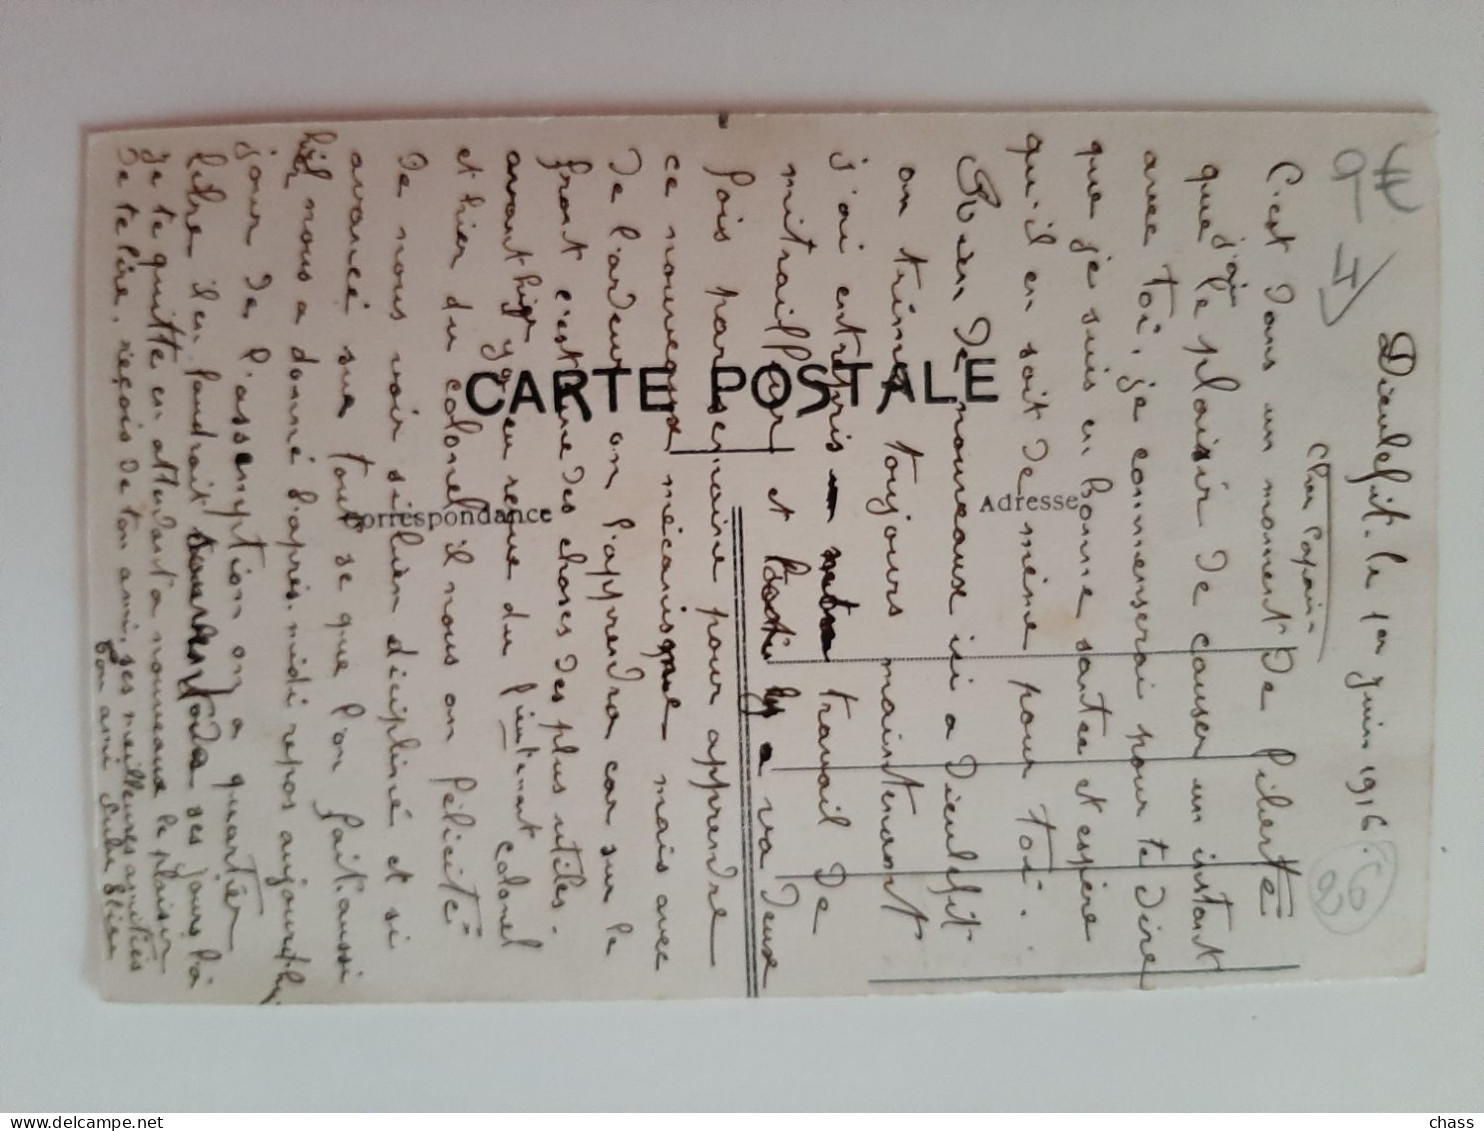 Dieulefit. le 1er juin 1916.
Cher Copain
C'est dans un moment de liberté
que j'ai le plaisir de causer un instant
avec toi, je commenserai pour te dire
que je suis en bonne santée et espère
qu'il en soit de même pour toi.
Rien de nouveaux ici a Dieulefit
on trime toujours maintenant
j'ai entrepris travail de
mitrailleur et va deux
fois par semaine pour apprendre
ce nouveaux mécanisme mais avec
de l'ardeur on l'apprendra car sur le
front c'est une des choses des plus utiles.
avant hier y a eu revue du lieutenant colonel
et hier du colonel il nous on félicité
de nous voir si bien dicipliné et si
avancé sur tout se que l'on fait. aussi
il nous a donné l'après-midi repos aujourd'hui
jour de l'assomption on a quartier
libre il en faudrait tous les ses jours là
je te quitte en attendant a nouveaux le plaisir
de te lire, reçois de ton ami, ses meilleures amitiés
ton ami
CARTE POSTALE
Correspondance
Adresse
chass